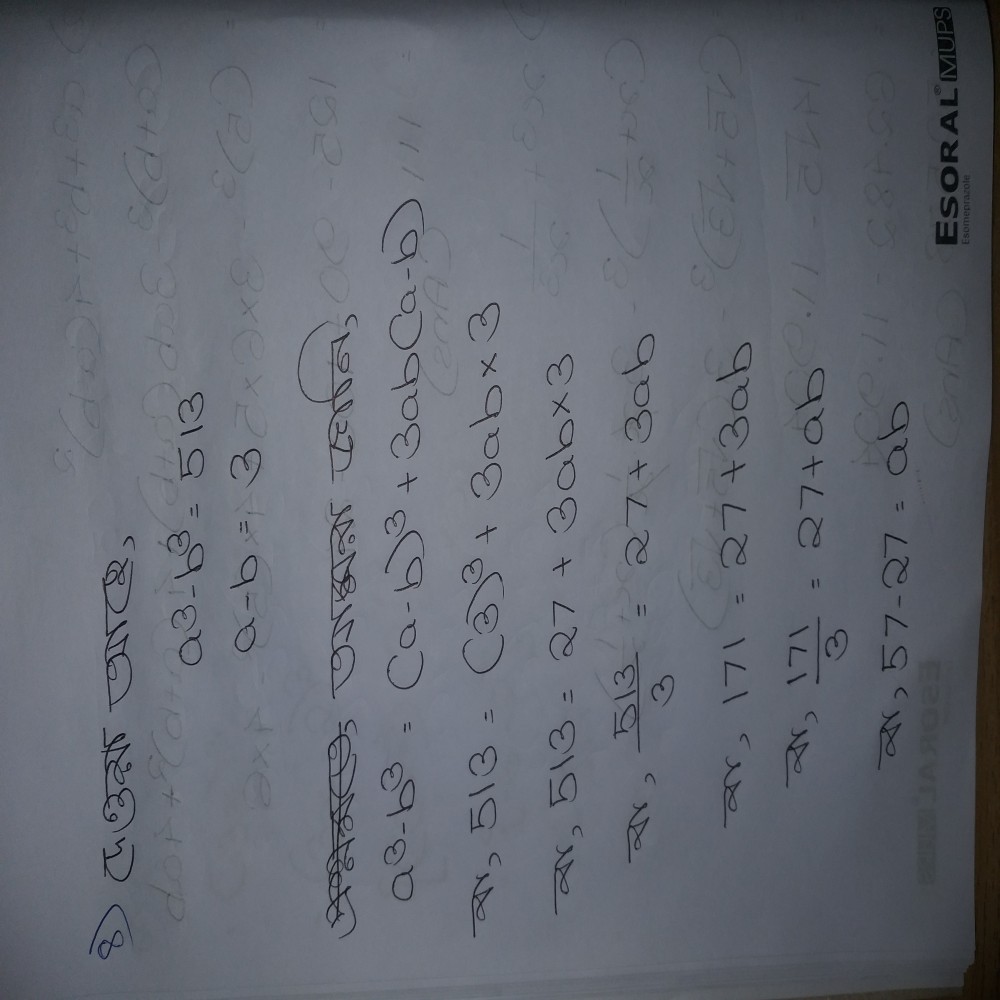 8) দেওয়া আছে,
a³-b³ = 513
a-b = 3
আমরা জানি,
a³-b³ = (a-b)³ + 3ab(a-b)
বা, 513 = (3)³ + 3ab×3
বা, 513 = 27 + 3ab×3
বা, 513/3 = 27 + 3ab
বা, 171 = 27 + 3ab
বা, 171/3 = 27 + ab
বা, 57-27 = ab
ESORAL® MUPS
Esomeprazole